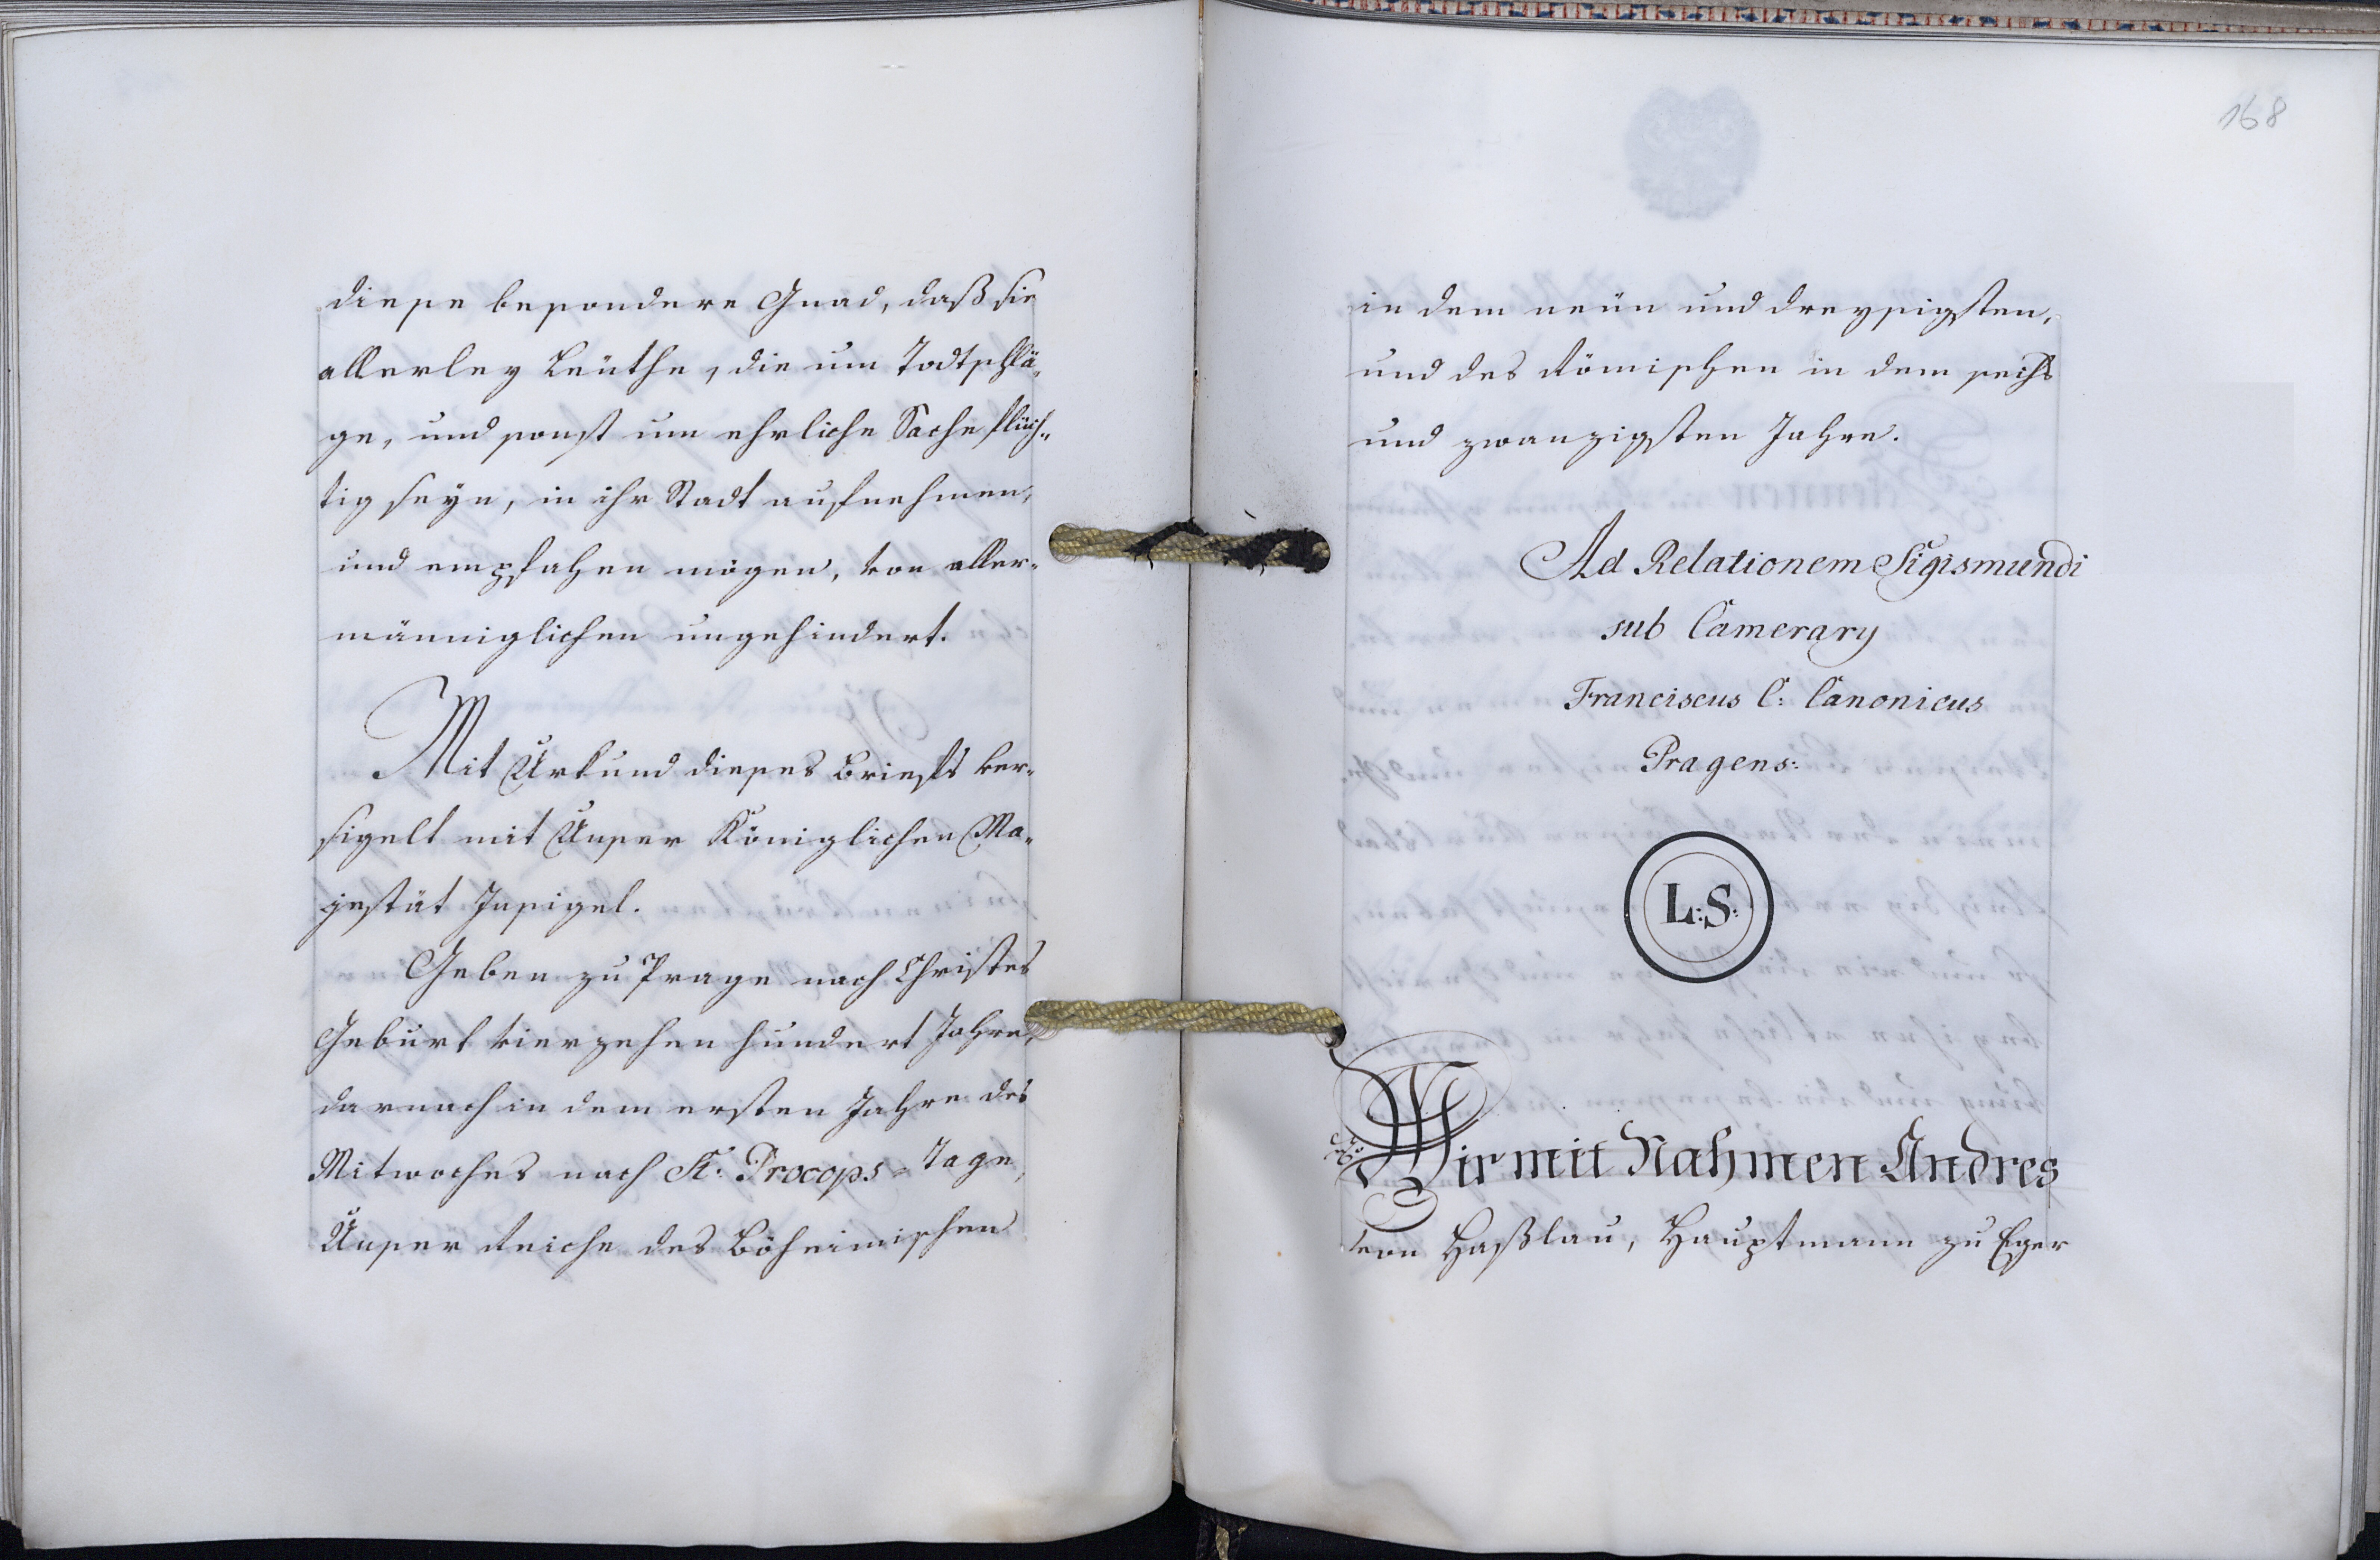 diese besondere Gnad, daß sie
allerley Leüthe, die um Todtschlä-
ge, und sonst um ehrliche Sache flüch-
tig seyn, in ihr Stadt aufnehmen,
und empfahen mögen, von aller-
männiglichen ungehindert.
Mit Urkund dieses Briefs ver-
sigelt mit Unser Königlichen Ma-
jestät Insigel.
Geben zu Prage nach Christes
Geburt vierzehen hundert Jahre,
darnach in dem ersten Jahre des
Mitwoches nach St: Procops-Tage,
Unser Reiche des Böheimischen
168
in dem neün und dreysigsten,
und des Römischen in dem sechs
und zwanzigsten Jahre.
Ad Relationem Sigismundi
sub Camerary
Franciscus C: Canonicus
Pragens:
L:S:
Wir mit Nahmen Andres
von Haßlau, Hauptmann zu Eger